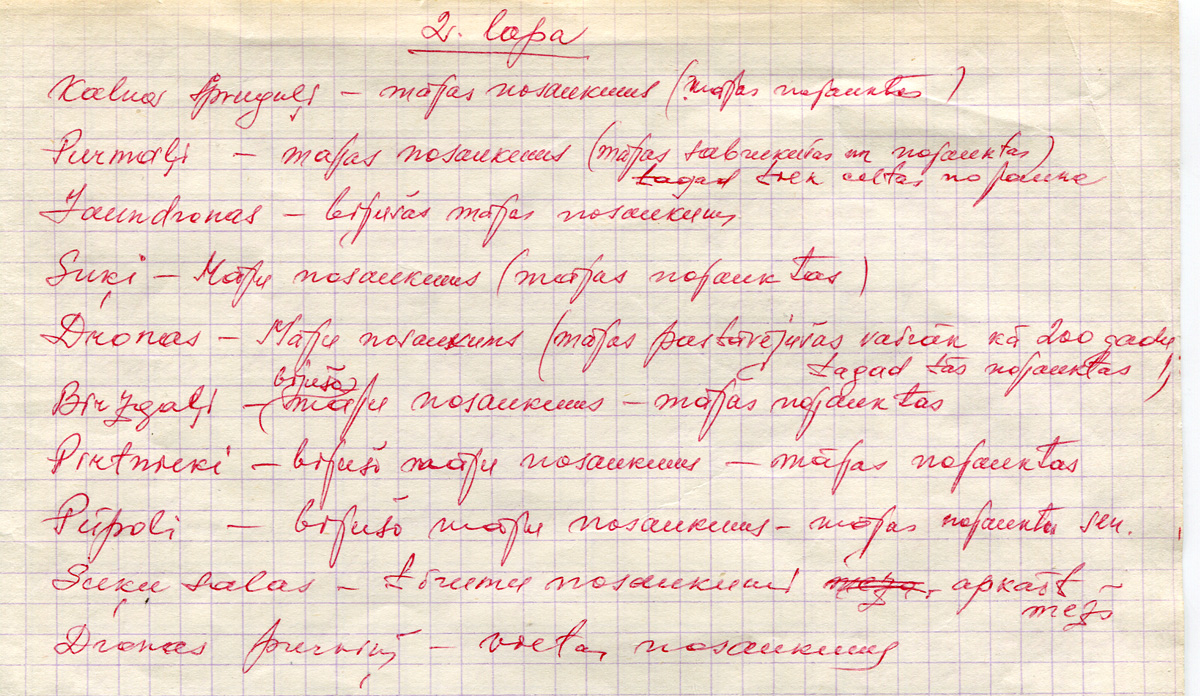 2. lapa
Kalna Spruguļi – mājas nosaukums (mājas nojauktas)
Purmaļi – mājas nosaukums (mājas sabrukušas un nojauktas)
tagad tiek celtas no jauna
Jaundronas – bijušās mājas nosaukums
Suķi – Māju nosaukums (mājas nojauktas)
Dronas – Māju nosaukums (mājas pastāvējušas vairāk kā 200 gadu,
tagad tās nojauktas!)
bijušo
Birzgaļi – (māju nosaukums – mājas nojauktas
Pirtnieki – bijušo māju nosaukums – mājas nojauktas
Pūpoli – bijušo māju nosaukums – mājas nojauktas sen.
Suķu salas – tīrumu nosaukumi apkārt –
mežs
Dronas purviņš – vietas nosaukums